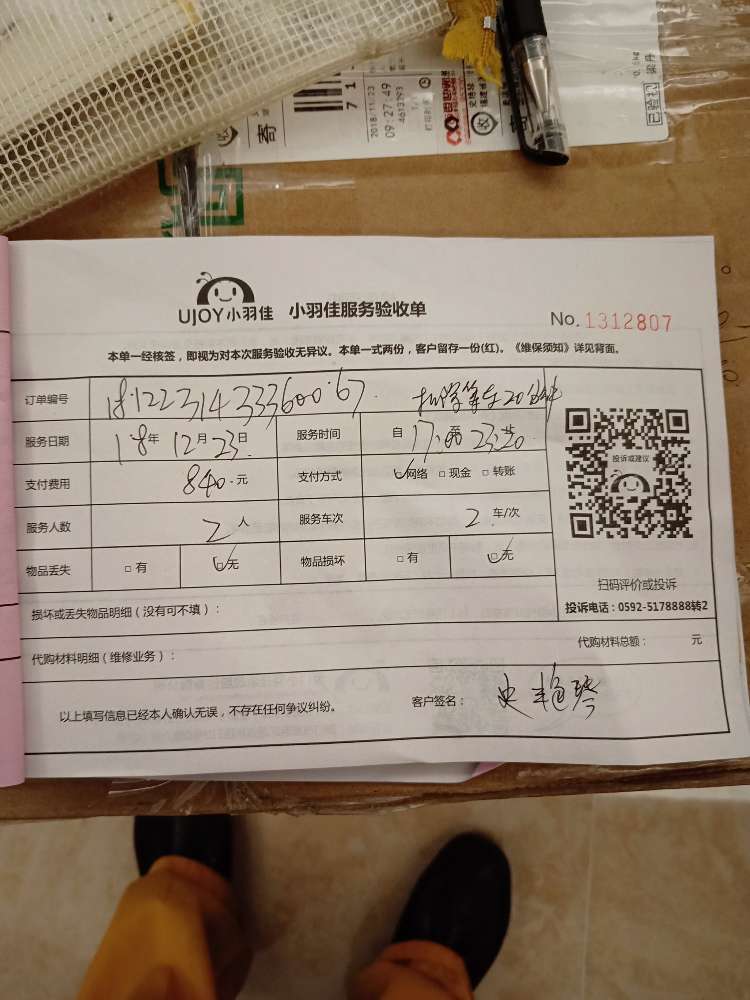 2018/11/23
09:27:49
4613293
打印时间
寄
收
已验视
UJOY小羽佳 小羽佳服务验收单
No. 1312807
本单一经核签，即视为对本次服务验收无异议。本单一式两份，客户留存一份(红)。《维保须知》详见背面。
订单编号 1812231433360067
服务日期 18年 12月 23日 服务时间 自 17:00 至
支付费用 840.元 支付方式 ☑网络 □现金 □转账
服务人数 2人 服务车次 2车/次
物品丢失 □有 ☑无 物品损坏 □有 ☑无
投诉或建议
扫码评价或投诉
投诉电话：0592-5178888转2
损坏或丢失物品明细（没有可不填）：
代购材料明细（维修业务）： 代购材料总额： 元
以上填写信息已经本人确认无误，不存在任何争议纠纷。 客户签名：史艳琴